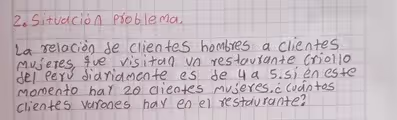 2. Situación problema.
La relación de clientes hombres a clientes
mujeres, que visitan un restaurante criollo
del Perú diariamente es de 4 a 5. si en este
momento hay 20 clientes mujeres. ¿cuántos
clientes varones hay en el restaurante?